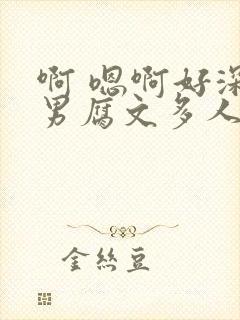 啊 嗯啊好深
男腐文多人
金丝豆